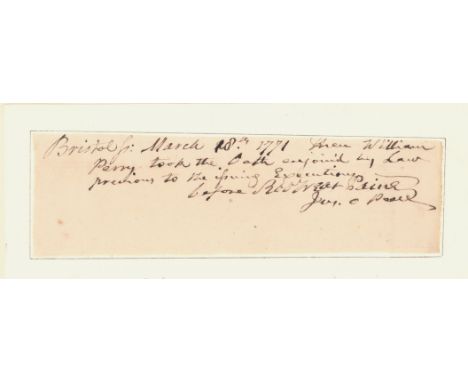 Bristol Ss: March 18th 1771 then William
Perry took the Oath enjoin'd by Law
previous to the issuing Executions
before Rob Treat Paine
Jus. o Peace